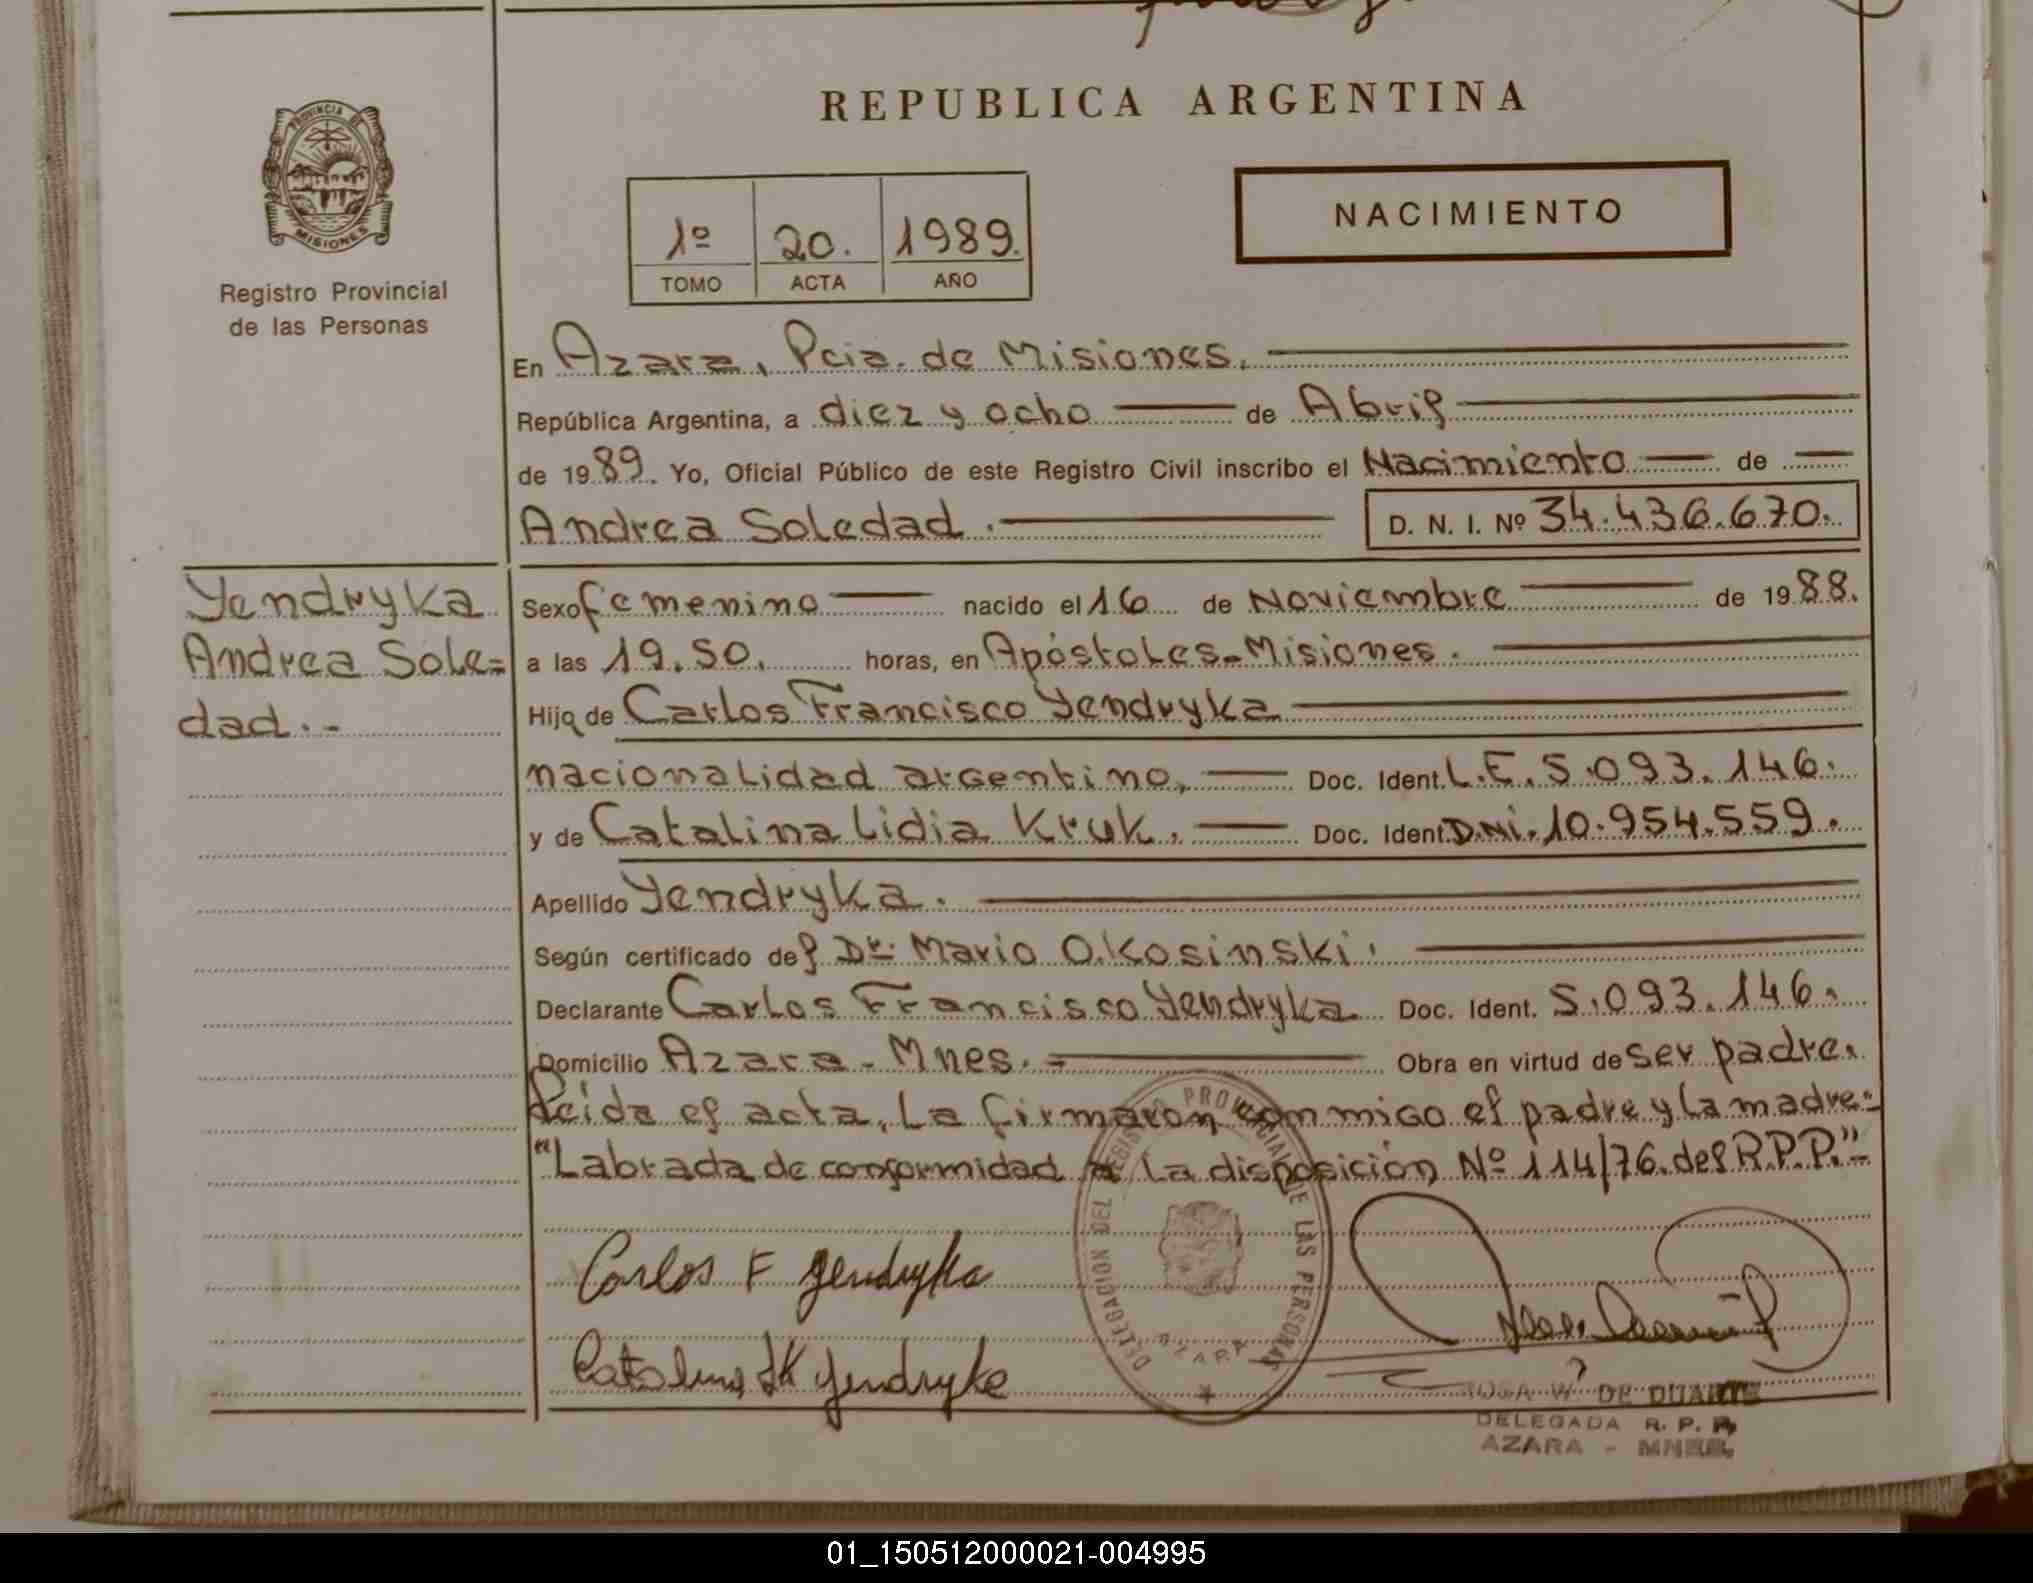 REPUBLICA ARGENTINA
PROVINCIA DE
MISIONES
Registro Provincial
de las Personas
1º 20. 1989.
TOMO ACTA AÑO
NACIMIENTO
En Azara, Pcia. de Misiones.
República Argentina, a diez y ocho de Abril
de 1989. Yo, Oficial Público de este Registro Civil inscribo el Nacimiento de
Andrea Soledad. D. N. I. Nº 34.436.670.
Yendryka
Andrea Sole=
dad.-
Sexo femenino nacido el 16 de Noviembre de 1988.
a las 19.50. horas, en Apóstoles-Misiones.
Hija de Carlos Francisco Yendryka
nacionalidad argentino, Doc. Ident. L.E. 5.093.146.
y de Catalina Lidia Kruk. Doc. Ident. D.Ni. 10.954.559.
Apellido Yendryka.
Según certificado del Dr. Mario O. Kosinski.
Declarante Carlos Francisco Yendryka Doc. Ident. 5.093.146.
Domicilio Azara-Mnes.- Obra en virtud de ser padre.
Leida el acta, la firmaron conmigo el padre y la madre=
"Labrada de conformidad a la disposición Nº 114/76. del R.P.P."-
DELEGACION DEL REGISTRO PROVINCIAL DE LAS PERSONAS
AZARA
Carlos F Yendryka
Catalina LK Yendryka
ROSA W. DE DUARTE
DELEGADA R. P. P.
AZARA - MNES.
01_150512000021-004995